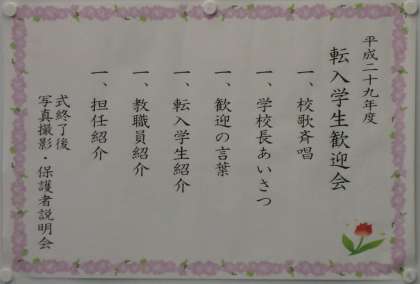 平成二十九年度
転入学生歓迎会
一、校歌斉唱
一、学校長あいさつ
一、歓迎の言葉
一、転入学生紹介
一、教職員紹介
一、担任紹介
式終了後
写真撮影・保護者説明会